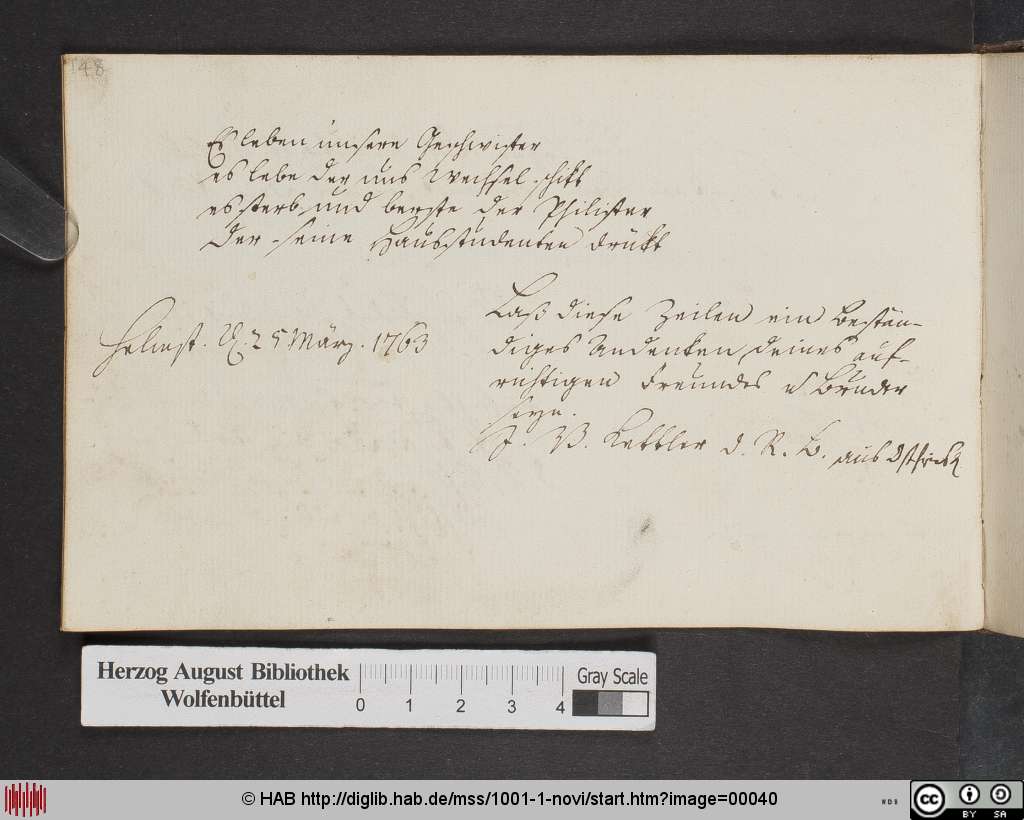 148
Es leben unsere Geschwister
es lebe der uns Wechsel schikt
es sterb und berste der Philister
Der seine Hausstudenten drükt
Laß diese Zeilen ein bestän-
diges Andenken deines auf-
richtigen Freundes u Bruder
seyn.
Helmst. d. 25 März. 1763
J. B. Kettler d. R. B. aus Ostfriesl
Herzog August Bibliothek
Wolfenbüttel
0 1 2 3 4
Gray Scale
© HAB http://diglib.hab.de/mss/1001-1-novi/start.htm?image=00040
cc BY SA